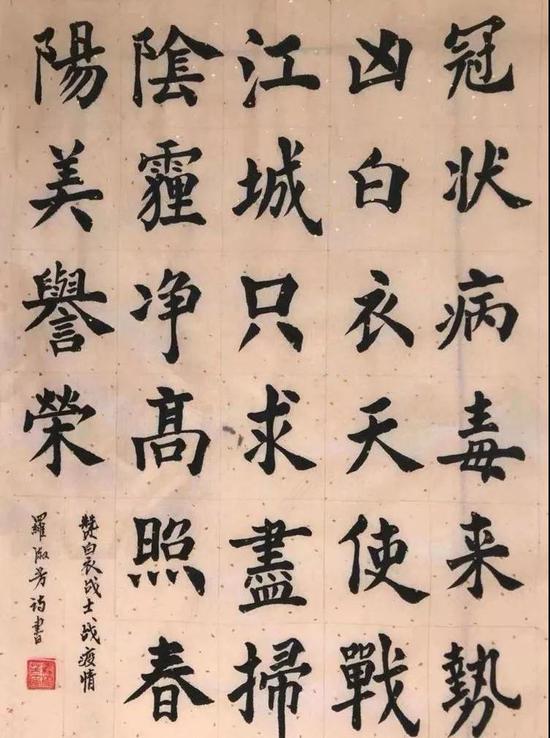 冠状病毒来勢
凶白衣天使戰
江城只求盡掃
陰霾净高照春
陽美譽榮
贊白衣战士战疫情
羅淑芳诗書